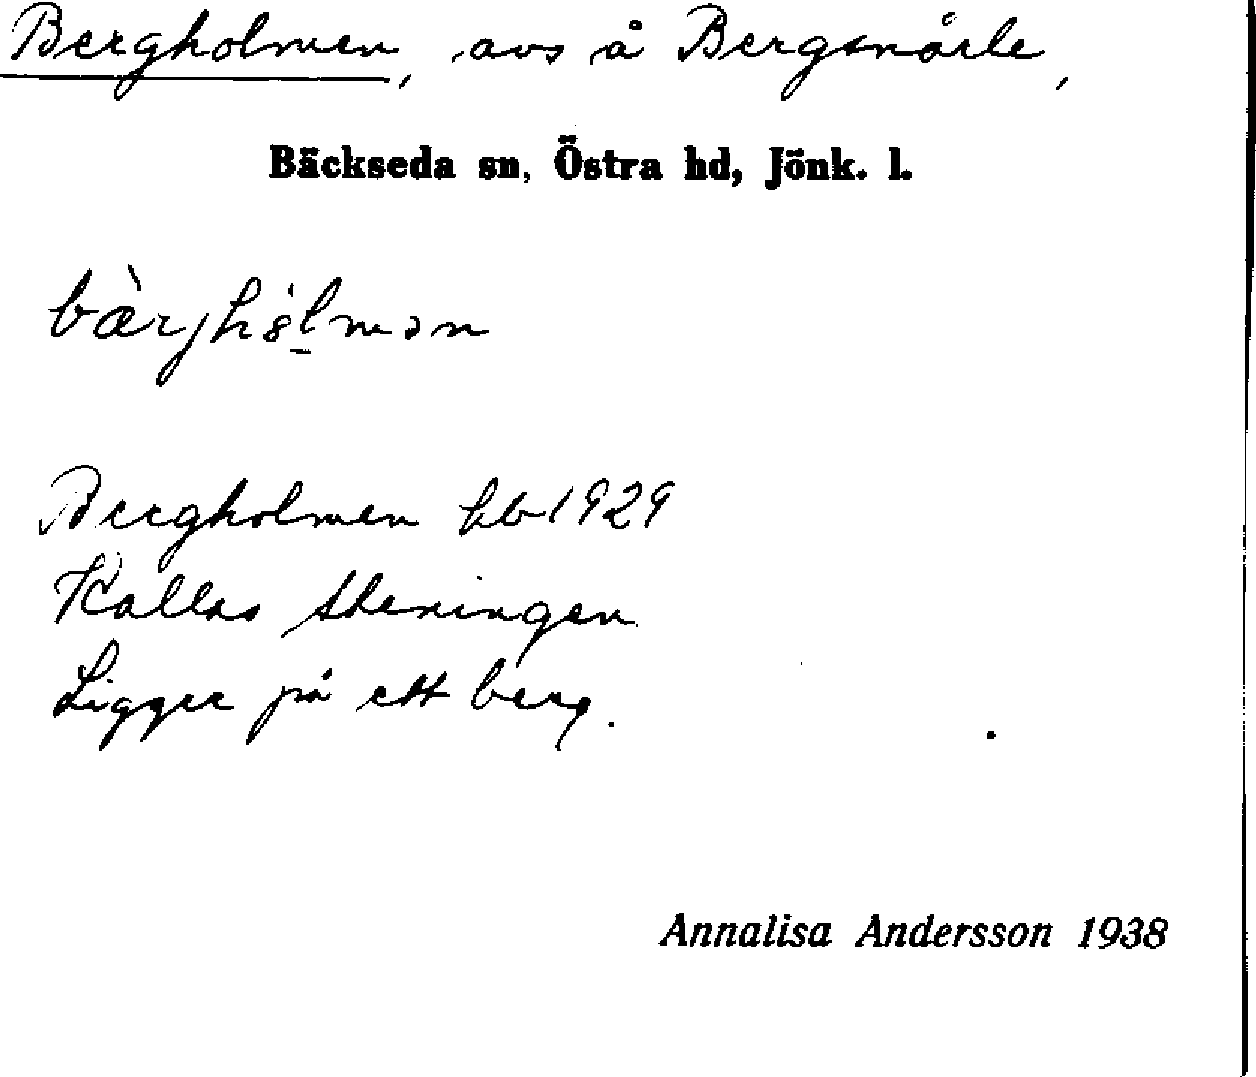 Bergholmen, avs å Bergsnårle,
Bäckseda sn, Östra hd, Jönk. l.
bær̀jhólmən
Bergholmen hb 1929
Kallas
Ligger på ett berg.
Annalisa Andersson 1938